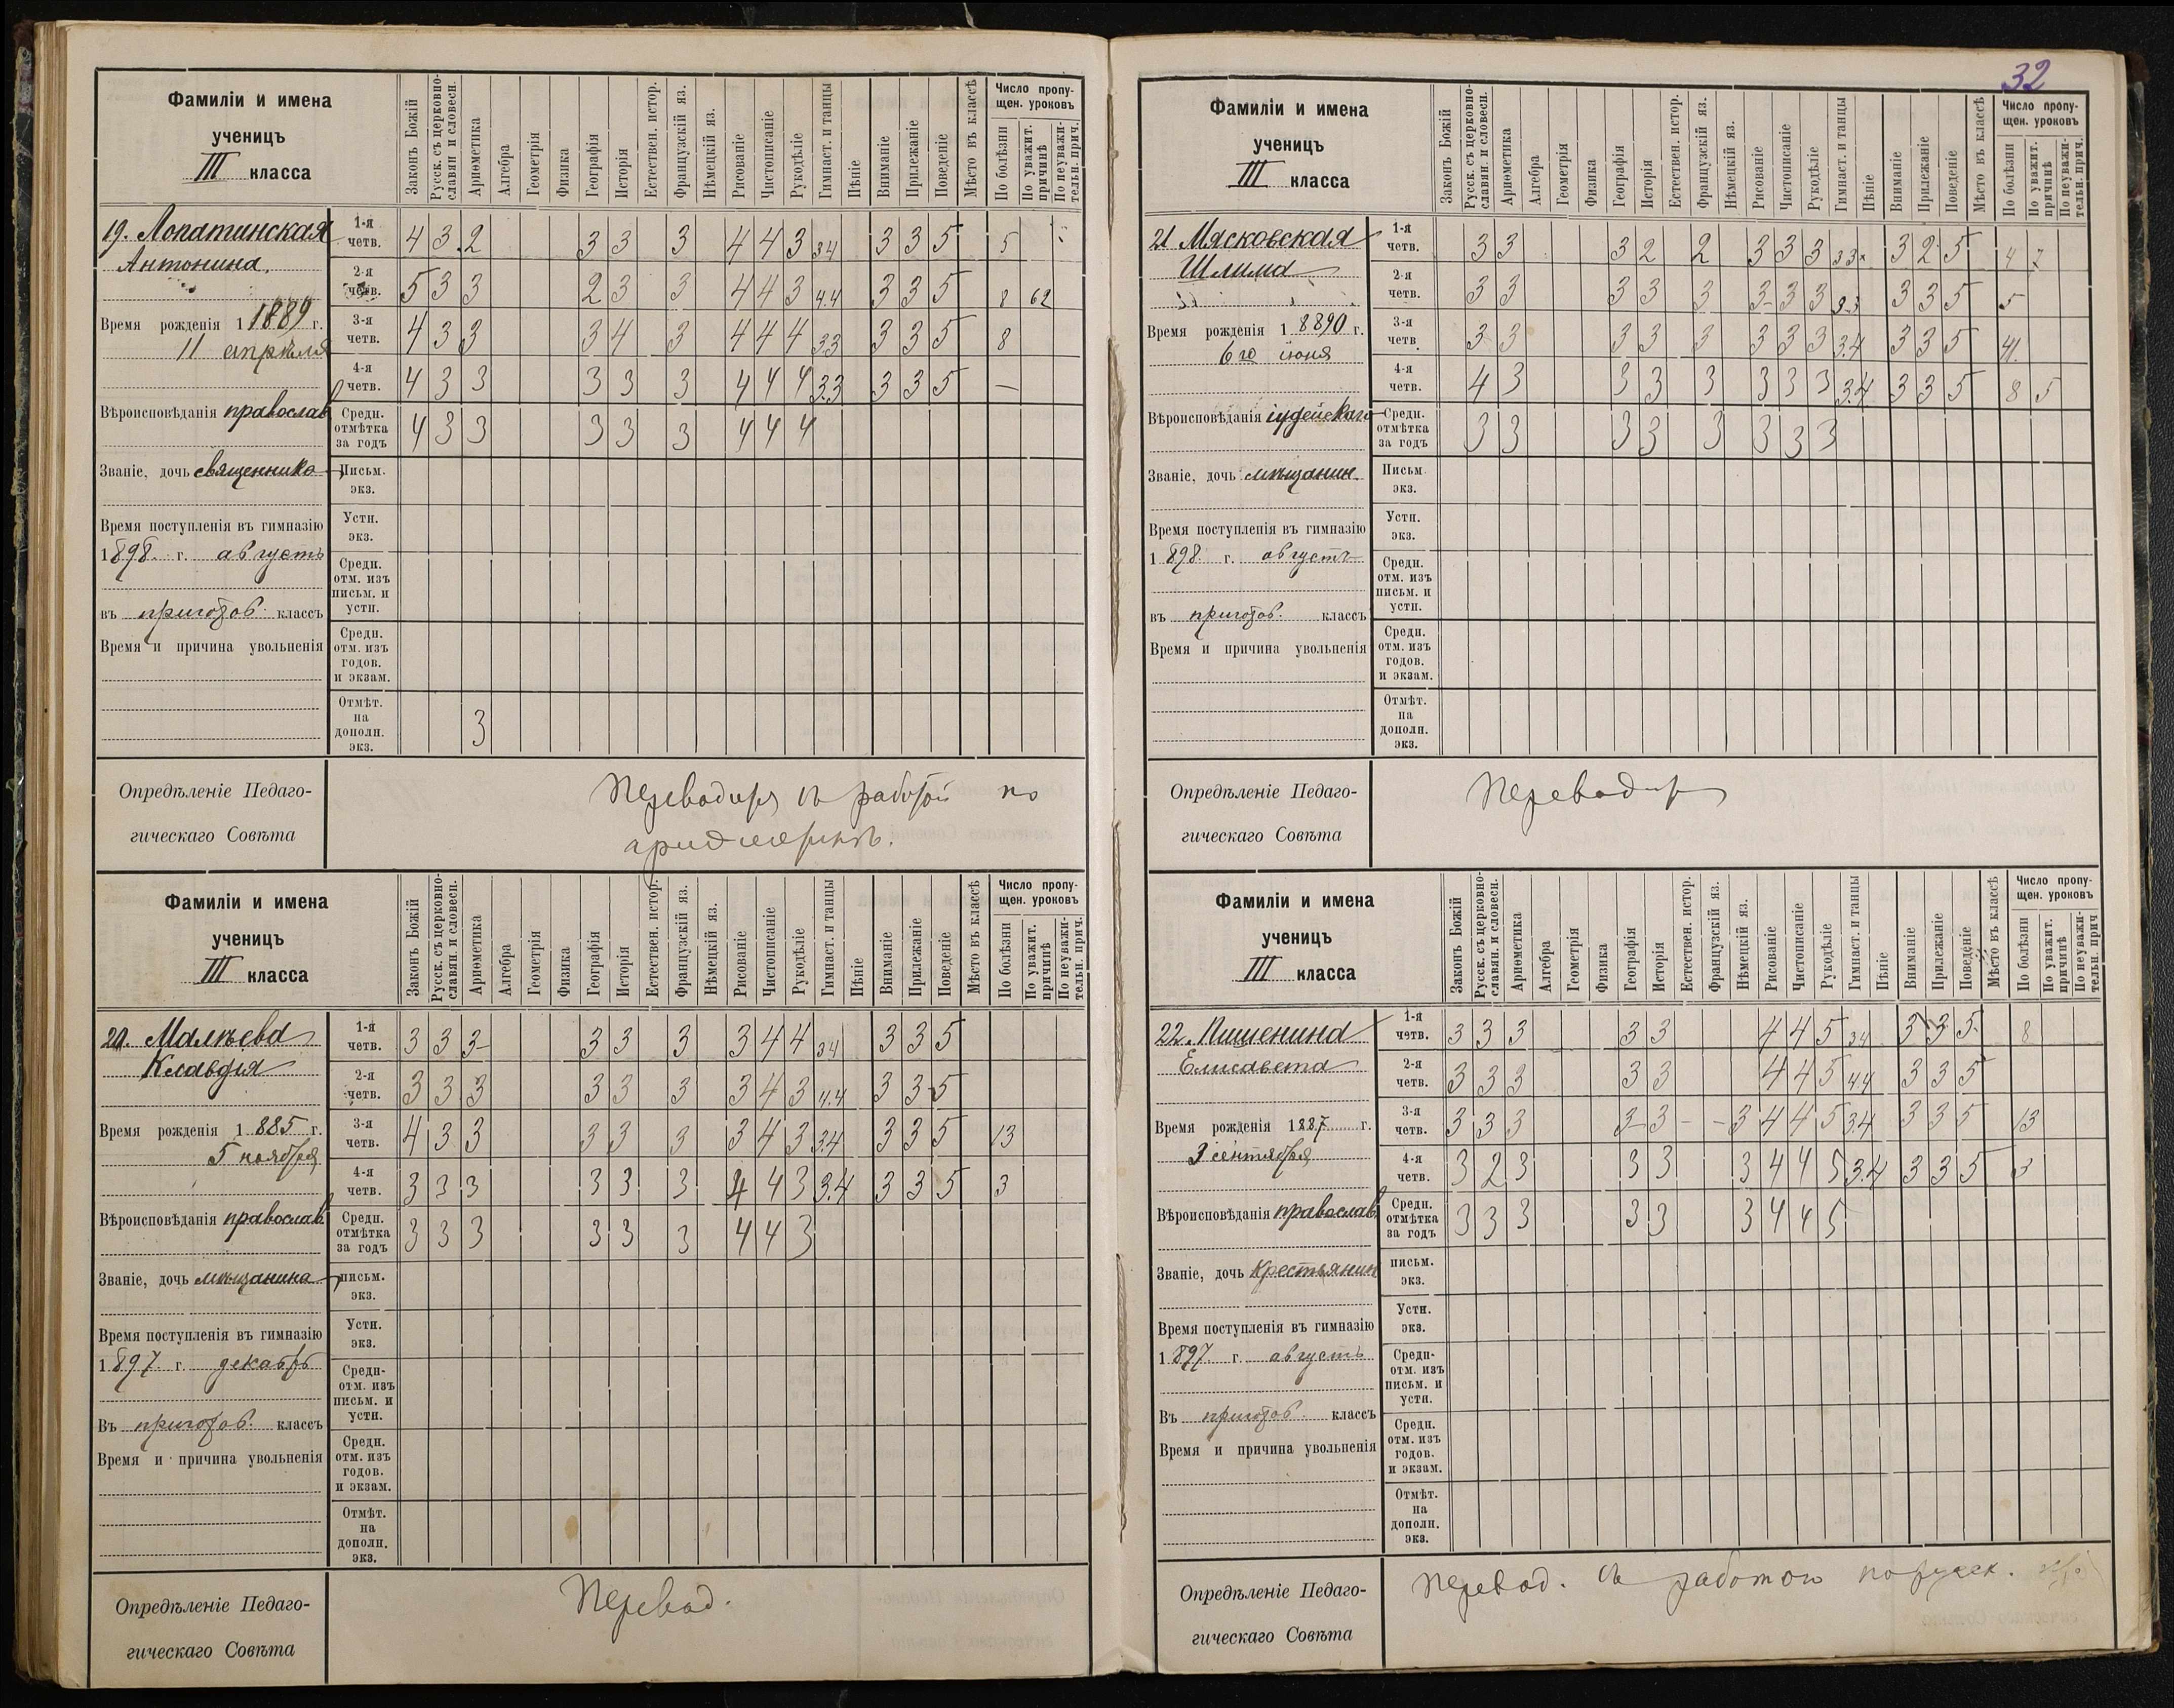 32
Фамиліи и имена
ученицъ
III класса
Законъ Божій
Русск. съ церковно-славян. и словесн.
Ариѳметика
Алгебра
Геометрія
Физика
Географія
Исторія
Естествен. истор.
Французскій яз.
Нѣмецкій яз.
Рисованіе
Чистописаніе
Рукодѣліе
Гимнаст. и танцы
Пѣніе
Вниманіе
Прилежаніе
Поведеніе
Мѣсто въ классѣ
Число пропущен. уроковъ
По болѣзни
По уважит. причинѣ
По неуважительн. прич.
19. Лопатинская
Антонина.
Время рожденія 1 1889 г.
11 апрѣля
Вѣроисповѣданія православ
Званіе, дочь священника
Время поступленія въ гимназію
1898. г. августъ
въ приготов. классъ
Время и причина увольненія
1-я четв. 4 3 2 3 3 3 4 4 3 3 4 3 3 5 5
2-я четв. 5 3 3 2 3 3 4 4 3 4.4 3 3 5 8 62
3-я четв. 4 3 3 3 4 3 4 4 4 3.3 3 3 5 8
4-я четв. 4 3 3 3 3 3 4 4 4 3.3 3 3 5 —
Средн. отмѣтка за годъ 4 3 3 3 3 3 4 4 4
Письм. экз.
Устн. экз.
Средн. отм. изъ письм. и устн.
Средн. отм. изъ годов. и экзам.
Отмѣт. на дополн. экз. 3
Опредѣленіе Педаго-
гическаго Совѣта
Переводится съ работой по
ариѳметикѣ.
Фамиліи и имена
ученицъ
III класса
Законъ Божій
Русск. съ церковно-славян. и словесн.
Ариѳметика
Алгебра
Геометрія
Физика
Географія
Исторія
Естествен. истор.
Французскій яз.
Нѣмецкій яз.
Рисованіе
Чистописаніе
Рукодѣліе
Гимнаст. и танцы
Пѣніе
Вниманіе
Прилежаніе
Поведеніе
Мѣсто въ классѣ
Число пропущен. уроковъ
По болѣзни
По уважит. причинѣ
По неуважительн. прич.
20. Малѣева
Клавдія
Время рожденія 1 885 г.
5 ноября
Вѣроисповѣданія православ.
Званіе, дочь мѣщанина
Время поступленія въ гимназію
1897. г. декабрь
Въ приготов. классъ
Время и причина увольненія
1-я четв. 3 3 3 3 3 3 3 4 4 3 4 3 3 5
2-я четв. 3 3 3 3 3 3 3 4 3 4.4 3 3 5
3-я четв. 4 3 3 3 3 3 3 4 3 3.4 3 3 5 13
4-я четв. 3 3 3 3 3 3 4 4 3 3.4 3 3 5 3
Средн. отмѣтка за годъ 3 3 3 3 3 3 4 4 3
письм. экз.
Устн. экз.
Средн- отм. изъ письм. и устн.
Средн. отм. изъ годов. и экзам.
Отмѣт. на дополн. экз.
Опредѣленіе Педаго-
гическаго Совѣта
Перевод.
Фамиліи и имена
ученицъ
III класса
Законъ Божій
Русск. съ церковно-славян. и словесн.
Ариѳметика
Алгебра
Геометрія
Физика
Географія
Исторія
Естествен. истор.
Французскій яз.
Нѣмецкій яз.
Рисованіе
Чистописаніе
Рукодѣліе
Гимнаст. и танцы
Пѣніе
Вниманіе
Прилежаніе
Поведеніе
Мѣсто въ классѣ
Число пропущен. уроковъ
По болѣзни
По уважит. причинѣ
По неуважительн. прич.
21 Мясковская
Шлима
Время рожденія 1 8890 г.
6го іюня
Вѣроисповѣданія іудейскаго
Званіе, дочь мѣщанин.
Время поступленія въ гимназію
1898. г. августъ
въ приготов. классъ
Время и причина увольненія
1-я четв. 3 3 3 2 2 3 3 3 3 3 3 2 5 4 7
2-я четв. 3 3 3 3 3 3 3 3 3.3 3 3 5 5
3-я четв. 3 3 3 3 3 3 3 3 3.4 3 3 5 41.
4-я четв. 4 3 3 3 3 3 3 3 3.4 3 3 5 8 5
Средн. отмѣтка за годъ 3 3 3 3 3 3 3 3
Письм. экз.
Устн. экз.
Средн. отм. изъ письм. и устн.
Средн. отм. изъ годов. и экзам.
Отмѣт. на дополн. экз.
Опредѣленіе Педаго-
гическаго Совѣта
Переводится
Фамиліи и имена
ученицъ
III класса
Законъ Божій
Русск. съ церковно-славян. и словесн.
Ариѳметика
Алгебра
Геометрія
Физика
Географія
Исторія
Естествен. истор.
Французскій яз.
Нѣмецкій яз.
Рисованіе
Чистописаніе
Рукодѣліе
Гимнаст. и танцы
Пѣніе
Вниманіе
Прилежаніе
Поведеніе
Мѣсто въ классѣ
Число пропущен. уроковъ
По болѣзни
По уважит. причинѣ
По неуважительн. прич
22. Пишенина
Елисавета
Время рожденія 1887 г.
3 сентября
Вѣроисповѣданія православ.
Званіе, дочь Крестьянин
Время поступленія въ гимназію
1897 г. августъ
Въ приготов. классъ
Время и причина увольненія
1-я четв. 3 3 3 3 3 4 4 5 3 4 3 3 5 8
2-я четв. 3 3 3 3 3 4 4 5 4.4 3 3 5
3-я четв. 3 3 3 3 3 - - 3 4 4 5 3.4 3 3 5 13
4-я четв. 3 2 3 3 3 3 4 4 5 3.4 3 3 5 3
Средн. отмѣтка за годъ 3 3 3 3 3 3 4 4 5
письм. экз.
Устн. экз.
Средн- отм. изъ письм. и устн.
Средн. отм. изъ годов. и экзам.
Отмѣт. на дополн. экз.
Опредѣленіе Педаго-
гическаго Совѣта
Перевод. съ работою по русск.